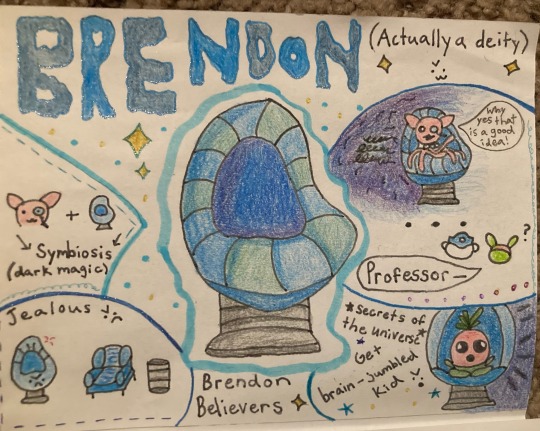 BRENDON
(Actually a deity)
why
yes that
is a good
idea!
+
Symbiosis
(dark magic)
?
Professor—
Jealous
*secrets of
the universe*
Get
brain-jumbled
Kid
Brendon
Believers